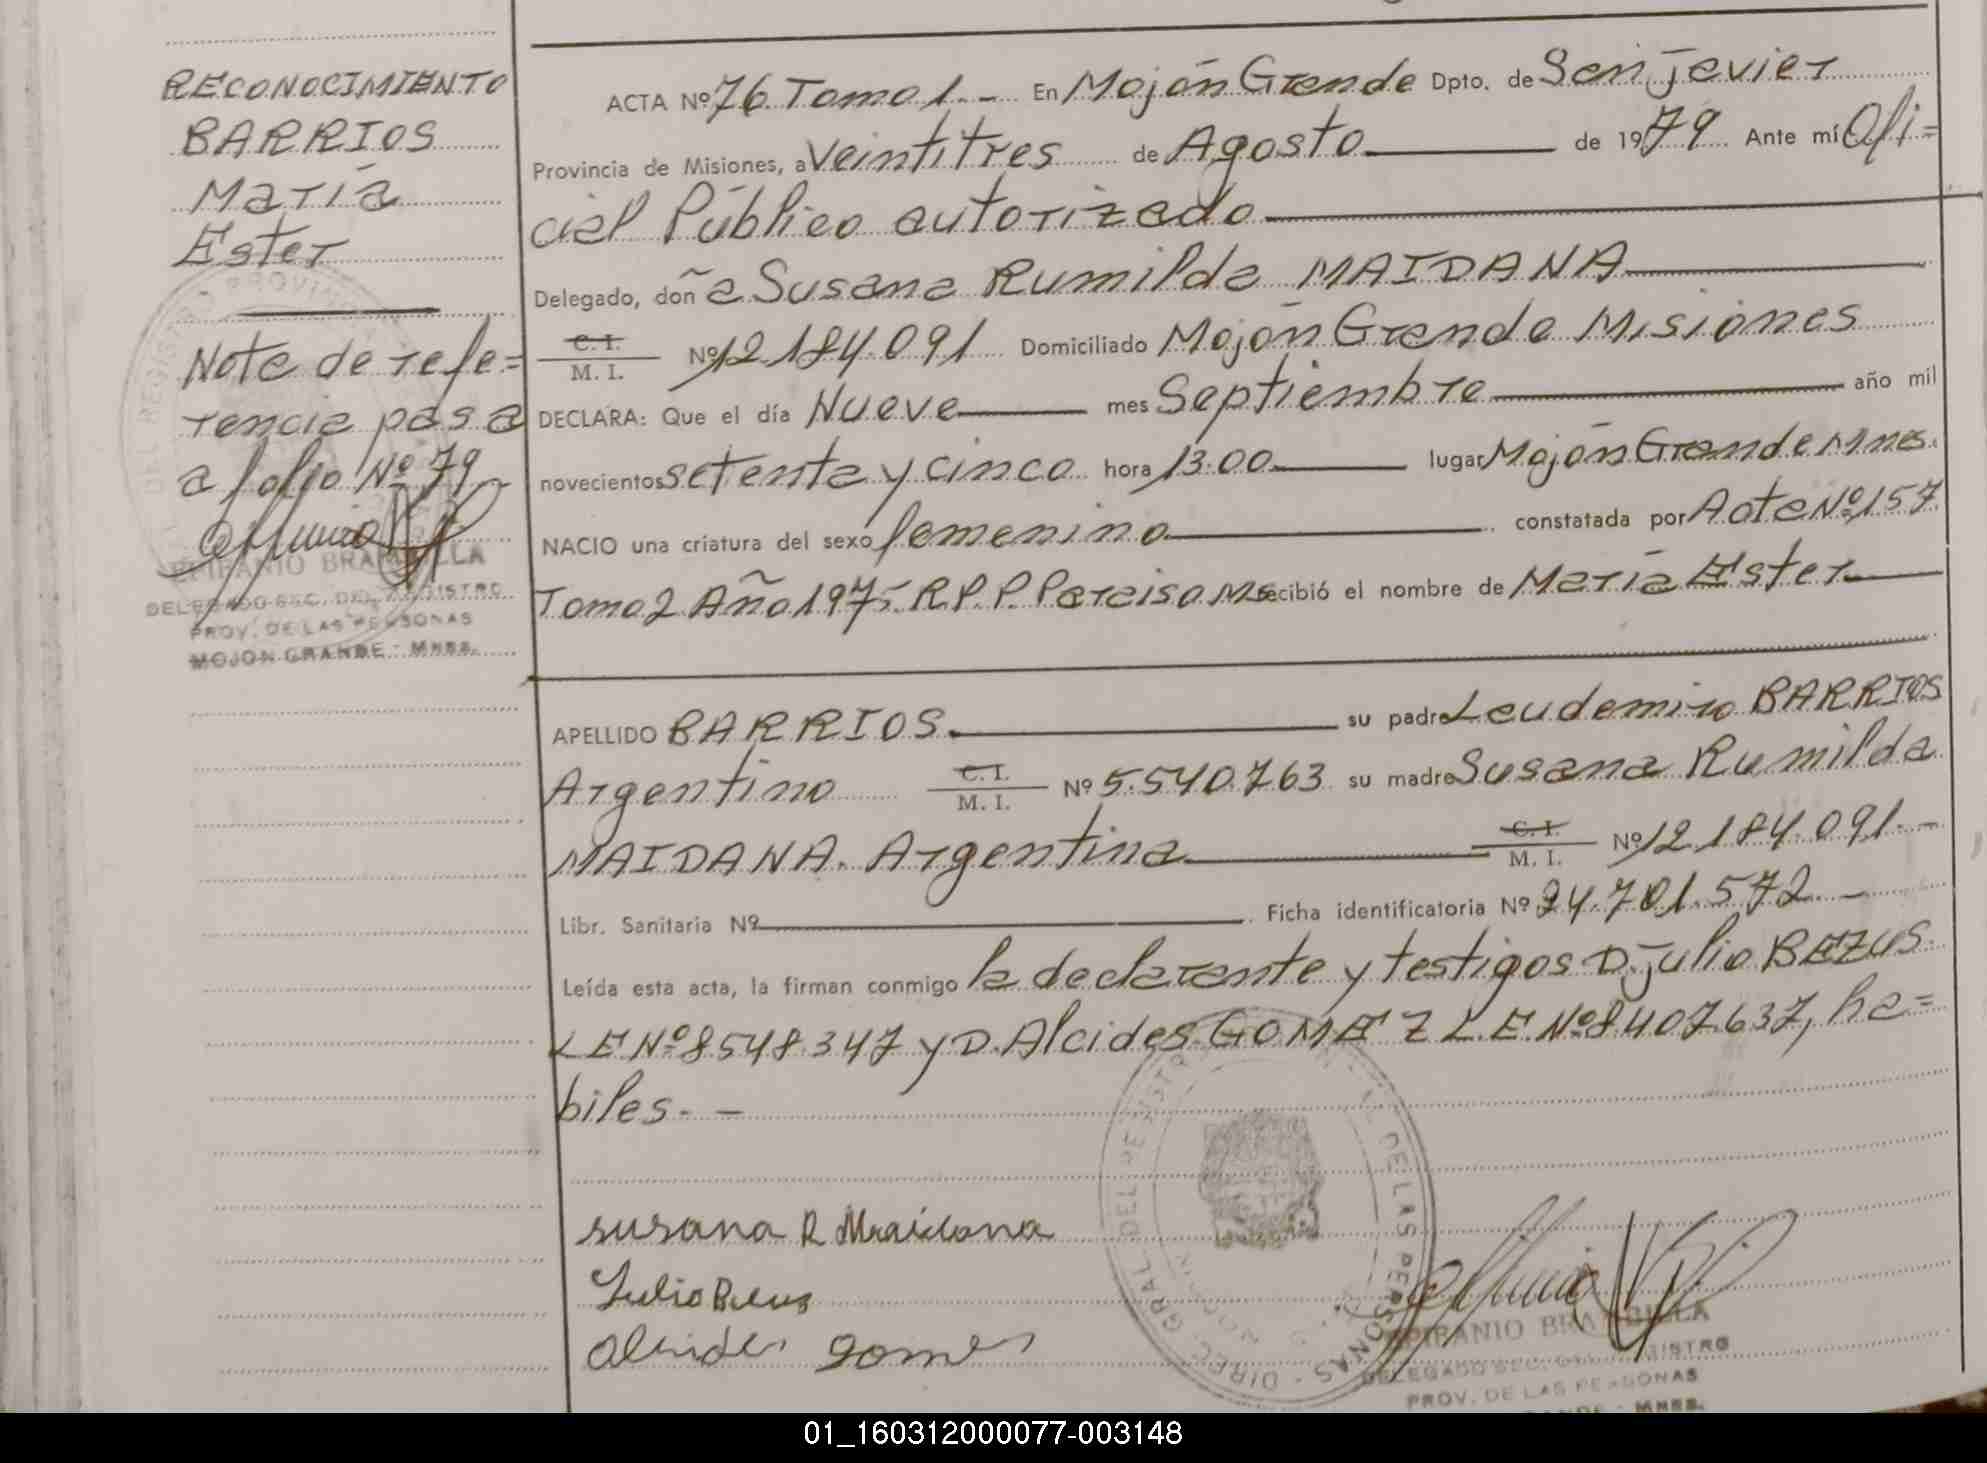 RECONOCIMIENTO
BARRIOS
María
Ester
Nota de refe=
rencia pasa
a folio Nº 79
EPIFANIO BRAMBILLA
DELEGADO SEC. DEL REGISTRO
PROV. DE LAS PERSONAS
MOJON GRANDE - MNES.
ACTA Nº 76 Tomo 1.- En Mojón Grande Dpto. de San Javier
Provincia de Misiones, a Veintitres de Agosto de 1979 Ante mí Ofi=
cial Público autorizado
Delegado, doña Susana Rumilda MAIDANA
C. I.
M. I. Nº 12.184.091 Domiciliado Mojón Grande Misiones
DECLARA: Que el día Nueve mes Septiembre año mil
novecientos setenta y cinco hora 13.00 lugar Mojón Grande Mnes.
NACIO una criatura del sexo femenino constatada por Acta Nº 157
Tomo 2 Año 1975. R.P.P. Paraiso Ms recibió el nombre de María Ester
APELLIDO BARRIOS. su padre Leudemiro BARRIOS
Argentino C. I.
M. I. Nº 5.540.763 su madre Susana Rumilda
MAIDANA. Argentina C. I.
M. I. Nº 12.184.091.-
Libr. Sanitaria Nº Ficha identificatoria Nº 24.701.572.-
Leída esta acta, la firman conmigo la declarante y testigos D. Julio BEZUS
LE Nº 8548.347 y D. Alcides GOMEZ L.E. Nº 8407.637, ha=
biles.-
susana R Maidana
Julio Bezus
Alcides Gomes
DIREC. GRAL. DEL REGISTRO DE LAS PERSONAS
EPIFANIO BRAMBILLA
DELEGADO SEC. DEL REGISTRO
PROV. DE LAS PERSONAS
MOJON GRANDE - MNES.
01_160312000077-003148